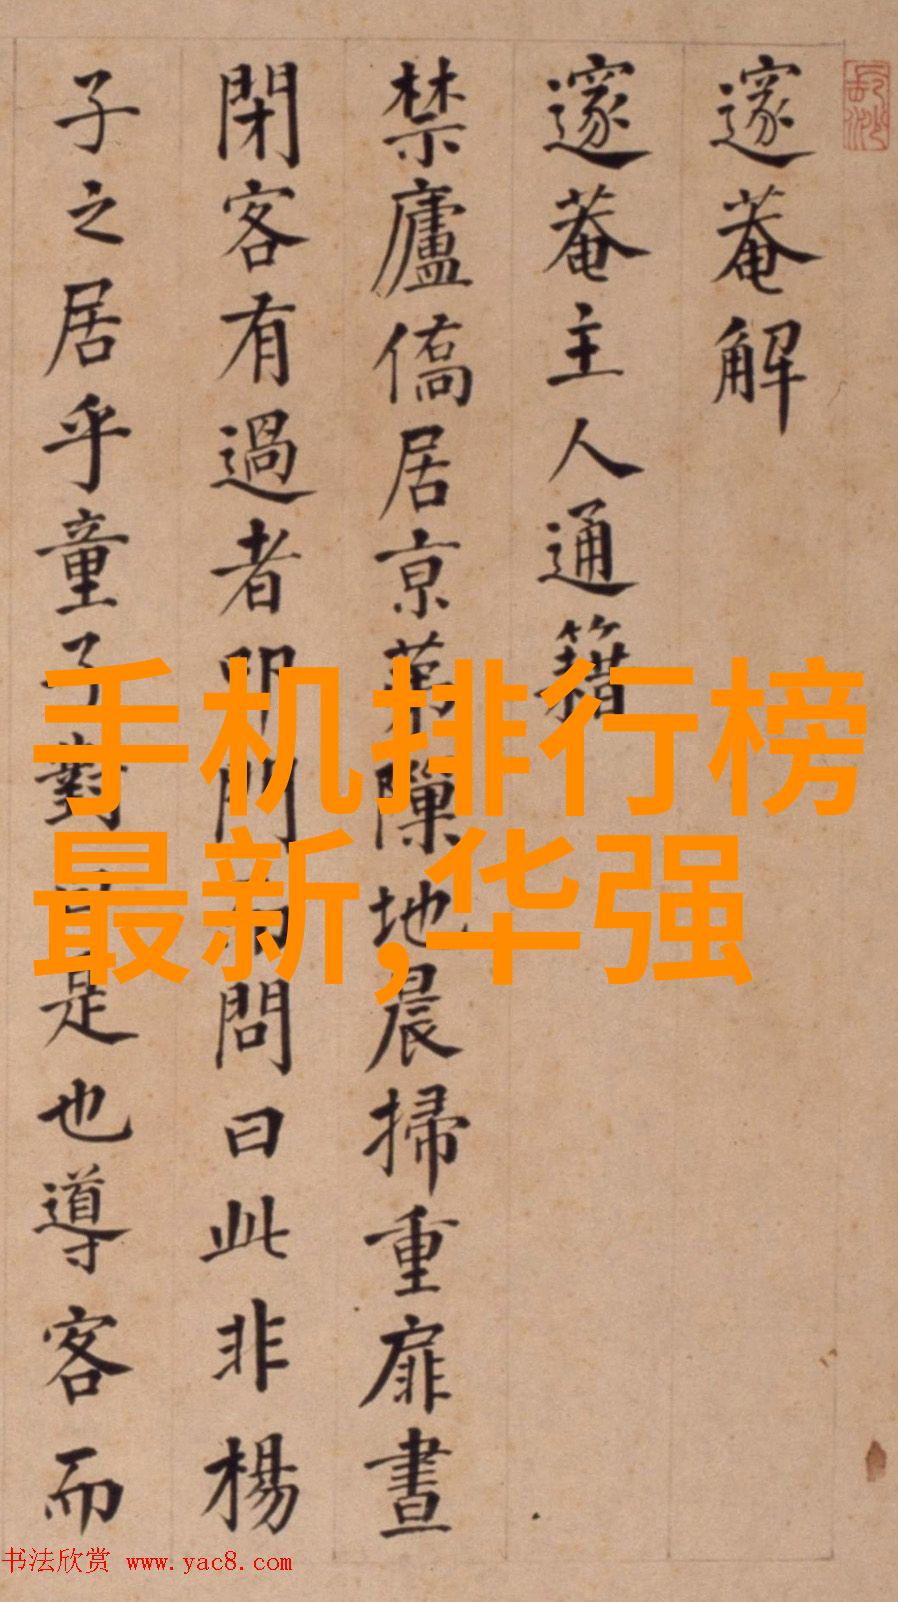 邃菴解
邃菴主人通籍
禁廬僑居京第隙地晨掃重扉晝
閉客有過者叩門而問曰此非楊
子之居乎童子對曰是也導客而
手机排行榜
最新,华强
书法欣赏 www.yac8.com